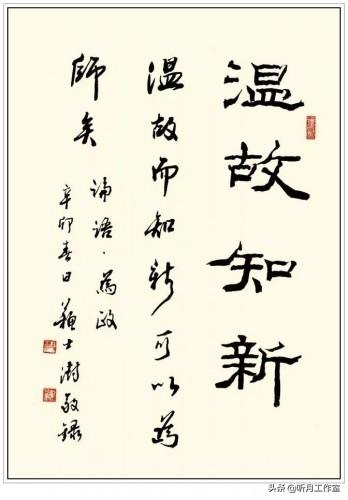 温故知新
温故而知新可以為
師矣
論語·為政
辛卯春日蘇士澍敬錄
头条@听月工作室